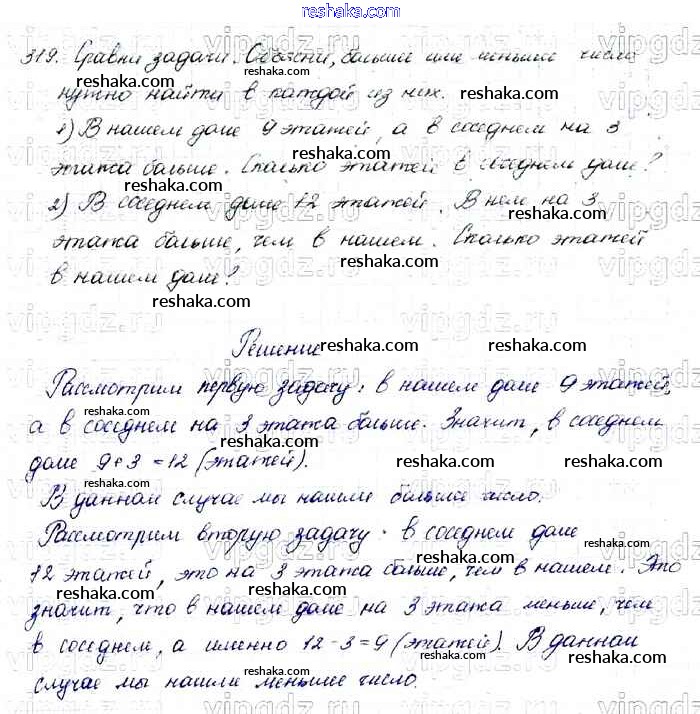 reshaka.com
319. Сравни задачи. Объясни, больше или меньше число
нужно найти в каждой из них.
1) В нашем доме 9 этажей, а в соседнем на 3
этажа больше. Сколько этажей в соседнем доме?
2) В соседнем доме 12 этажей. В нем на 3
этажа больше, чем в нашем. Сколько этажей
в нашем доме?
Решение
Рассмотрим первую задачу: в нашем доме 9 этажей,
а в соседнем на 3 этажа больше. Значит, в соседнем
доме 9+3=12 (этажей).
В данном случае мы нашли большее число.
Рассмотрим вторую задачу: в соседнем доме
12 этажей, это на 3 этажа больше, чем в нашем. Это
значит, что в нашем доме на 3 этажа меньше, чем
в соседнем, а именно 12-3=9 (этажей). В данном
случае мы нашли меньшее число.
reshaka.com